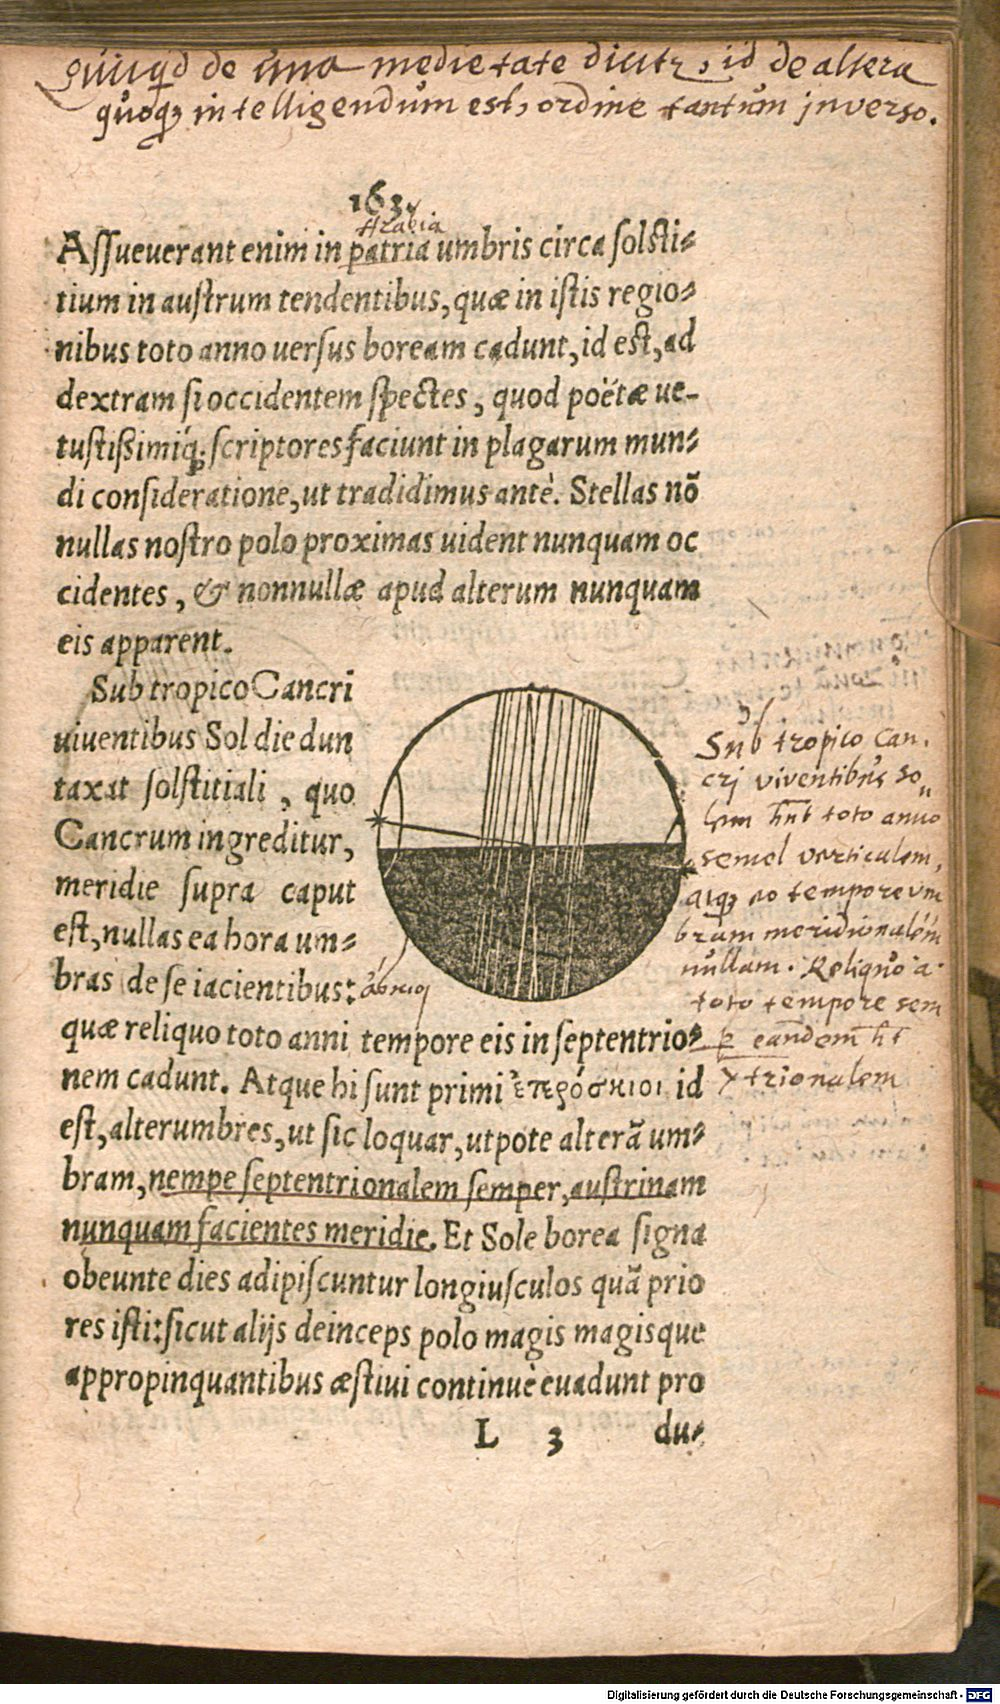 quicqd de una medietate dicitr, id de altera
quoqꝫ intelligendum est, ordine tantum inverso.
163.
Arabia
Aſſueuerant enim in patria umbris circa ſolſti-
tium in auſtrum tendentibus, quæ in iſtis regio-
nibus toto anno uerſus boream cadunt, id eſt, ad
dextram ſi occidentem ſpectes, quod poëtæ ue-
tuſtißimiq́; ſcriptores faciunt in plagarum mun-
di conſideratione, ut tradidimus antè. Stellas nõ
nullas noſtro polo proximas uident nunquam oc
cidentes, & nonnullæ apud alterum nunquam
eis apparent.
Sub tropico Cancri
uiuentibus Sol die dun
taxat ſolſtitiali, quo
Cancrum ingreditur,
meridie ſupra caput
eſt, nullas ea hora um-
bras de ſe iacientibus:
quæ reliquo toto anni tempore eis in ſeptentrio-
nem cadunt. Atque hi ſunt primi ἑτερόσκιοι id
eſt, alterumbres, ut ſic loquar, utpote alterã um-
bram, nempe ſeptentrionalem ſemper, auſtrinam
nunquam facientes meridie. Et Sole borea ſigna
obeunte dies adipiſcuntur longiuſculos quã prio
res iſti: ſicut alijs deinceps polo magis magisque
appropinquantibus æſtiui continuè euadunt pro
L 3 du-
Sub tropico Can.
cri viventibus So
lem hnt toto anno
semel verticalem,
atqꝫ eo tempore vm
bram meridionalem
nullam. Reliquo a
toto tempore sem
p eandem ht
trionalem
Digitalisierung gefördert durch die Deutsche Forschungsgemeinschaft - DFG